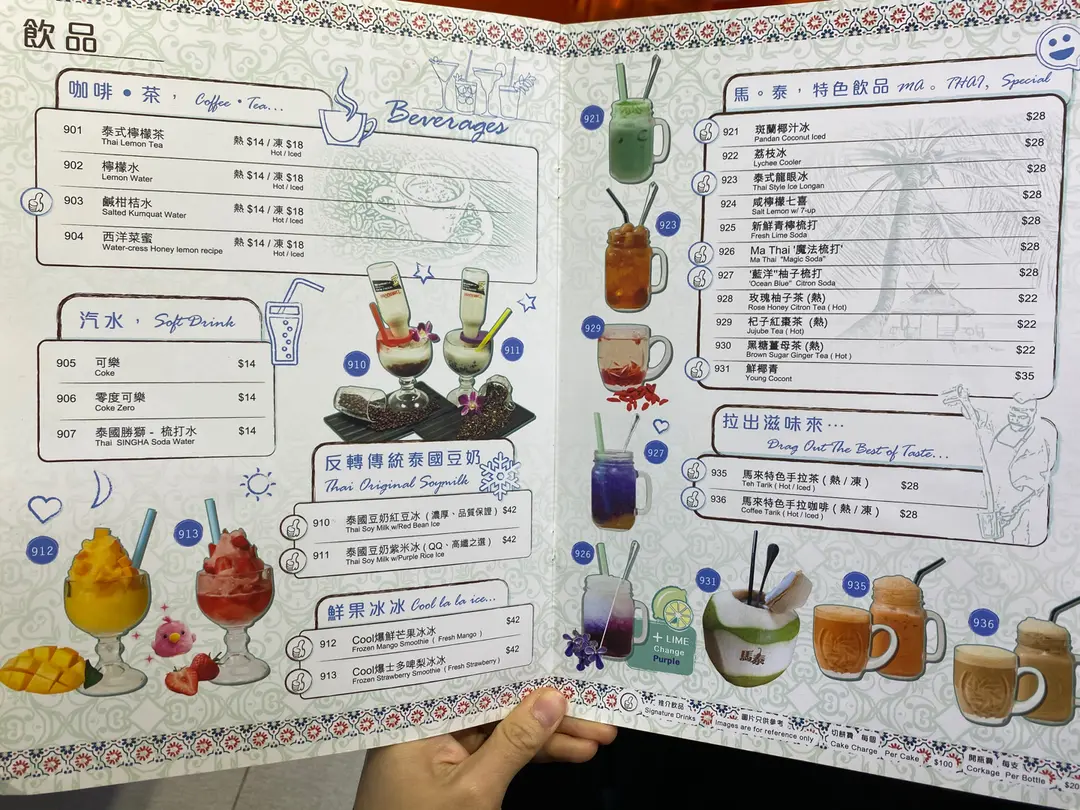 飲品
咖啡・茶， Coffee・Tea...
Beverages
901 泰式檸檬茶 熱 $14 / 凍 $18
Thai Lemon Tea Hot / Iced
902 檸檬水 熱 $14 / 凍 $18
Lemon Water Hot / Iced
903 鹹柑桔水 熱 $14 / 凍 $18
Salted Kumquat Water Hot / Iced
904 西洋菜蜜 熱 $14 / 凍 $18
Water-cress Honey lemon recipe Hot / Iced
汽水， Soft Drink
905 可樂 $14
Coke
906 零度可樂 $14
Coke Zero
907 泰國勝獅 - 梳打水 $14
Thai SINGHA Soda Water
910
911
反轉傳統泰國豆奶
Thai Original Soymilk
910 泰國豆奶紅豆冰 ( 濃厚、品質保證 ) $42
Thai Soy Milk w/Red Bean Ice
911 泰國豆奶紫米冰 ( QQ、高纖之選 ) $42
Thai Soy Milk w/Purple Rice Ice
912
913
鮮果冰冰 Cool la la ice...
912 Cool爆鮮芒果冰冰 $42
Frozen Mango Smoothie ( Fresh Mango )
913 Cool爆士多啤梨冰冰 $42
Frozen Strawberry Smoothie ( Fresh Strawberry )
馬。泰，特色飲品 MA。THAI, Special
921 斑蘭椰汁冰 $28
Pandan Coconut Iced
922 荔枝冰 $28
Lychee Cooler
923 泰式龍眼冰 $28
Thai Style Ice Longan
924 咸檸檬七喜 $28
Salt Lemon w/ 7-up
925 新鮮青檸梳打 $28
Fresh Lime Soda
926 Ma Thai '魔法梳打' $28
Ma Thai "Magic Soda"
927 '藍洋"柚子梳打 $28
'Ocean Blue" Citron Soda
928 玫瑰柚子茶 (熱) $22
Rose Honey Citron Tea ( Hot )
929 杞子紅棗茶 (熱) $22
Jujube Tea ( Hot )
930 黑糖薑母茶 (熱) $22
Brown Sugar Ginger Tea ( Hot )
931 鮮椰青 $35
Young Cocont
921
923
929
927
926
931
935
936
拉出滋味來…
Drag Out The Best of Taste...
935 馬來特色手拉茶 ( 熱 / 凍 ) $28
Teh Tarik ( Hot / Iced )
936 馬來特色手拉咖啡 ( 熱 / 凍 ) $28
Coffee Tarik ( Hot / Iced )
+ LIME
Change
Purple
馬泰
推介飲品
Signature Drinks
圖片只供參考
Images are for reference only
切餅費 每個
Cake Charge Per Cake $100
開瓶費 每支
Corkage Per Bottle